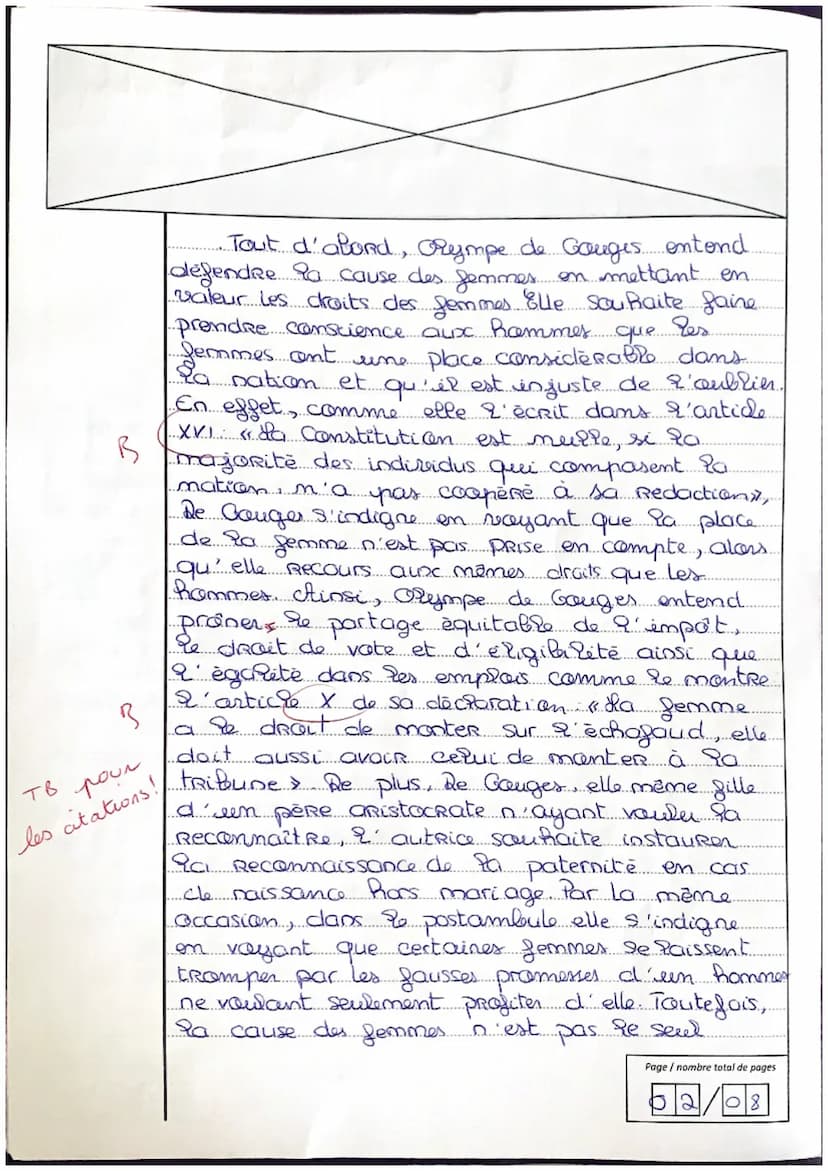 Tout d'abord, Olympe de Gouges entend
défendre la cause des femmes en mettant en
valeur les droits des femmes. Elle souhaite faire
prendre conscience aux hommes que les
femmes ont une place considérable dans
la nation et qu'il est injuste de l'oublier.
En effet, comme elle l'écrit dans l'article
B
XVI : « La Constitution est nulle, si la
majorité des individus qui composent la
nation, n'a pas coopéré à sa rédaction »,
De Gouges s'indigne en voyant que la place
de la femme n'est pas prise en compte, alors
qu'elle recours aux mêmes droits que les
hommes. Ainsi, Olympe de Gouges entend
prôner le partage équitable de l'impôt,
le droit de vote et d'éligibilité ainsi que
l'égalité dans les emplois comme le montre
B
l'article X de sa déclaration : « La femme
a le droit de monter sur l'échafaud, elle
doit aussi avoir celui de monter à la
TB pour
les citations !
tribune ». De plus, De Gouges, elle même fille
d'un père aristocrate n'ayant voulu la
reconnaître, l'autrice souhaite instaurer
la reconnaissance de la paternité en cas
de naissance hors mariage. Par la même
occasion, dans le postambule elle s'indigne
en voyant que certaines femmes se laissent
tromper par les fausses promesses d'un homme
ne voulant seulement profiter d'elle. Toutefois,
la cause des femmes n'est pas le seul
Page / nombre total de pages
02/08